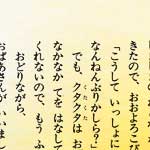 きたので、おおよろこび
「こうして いっしょに
なんねんぶりかしら？」
でも、クタクタは お
なかなか てを はなして
くれないので、もう ふ
おどりながら、
おばあさんが いいまし